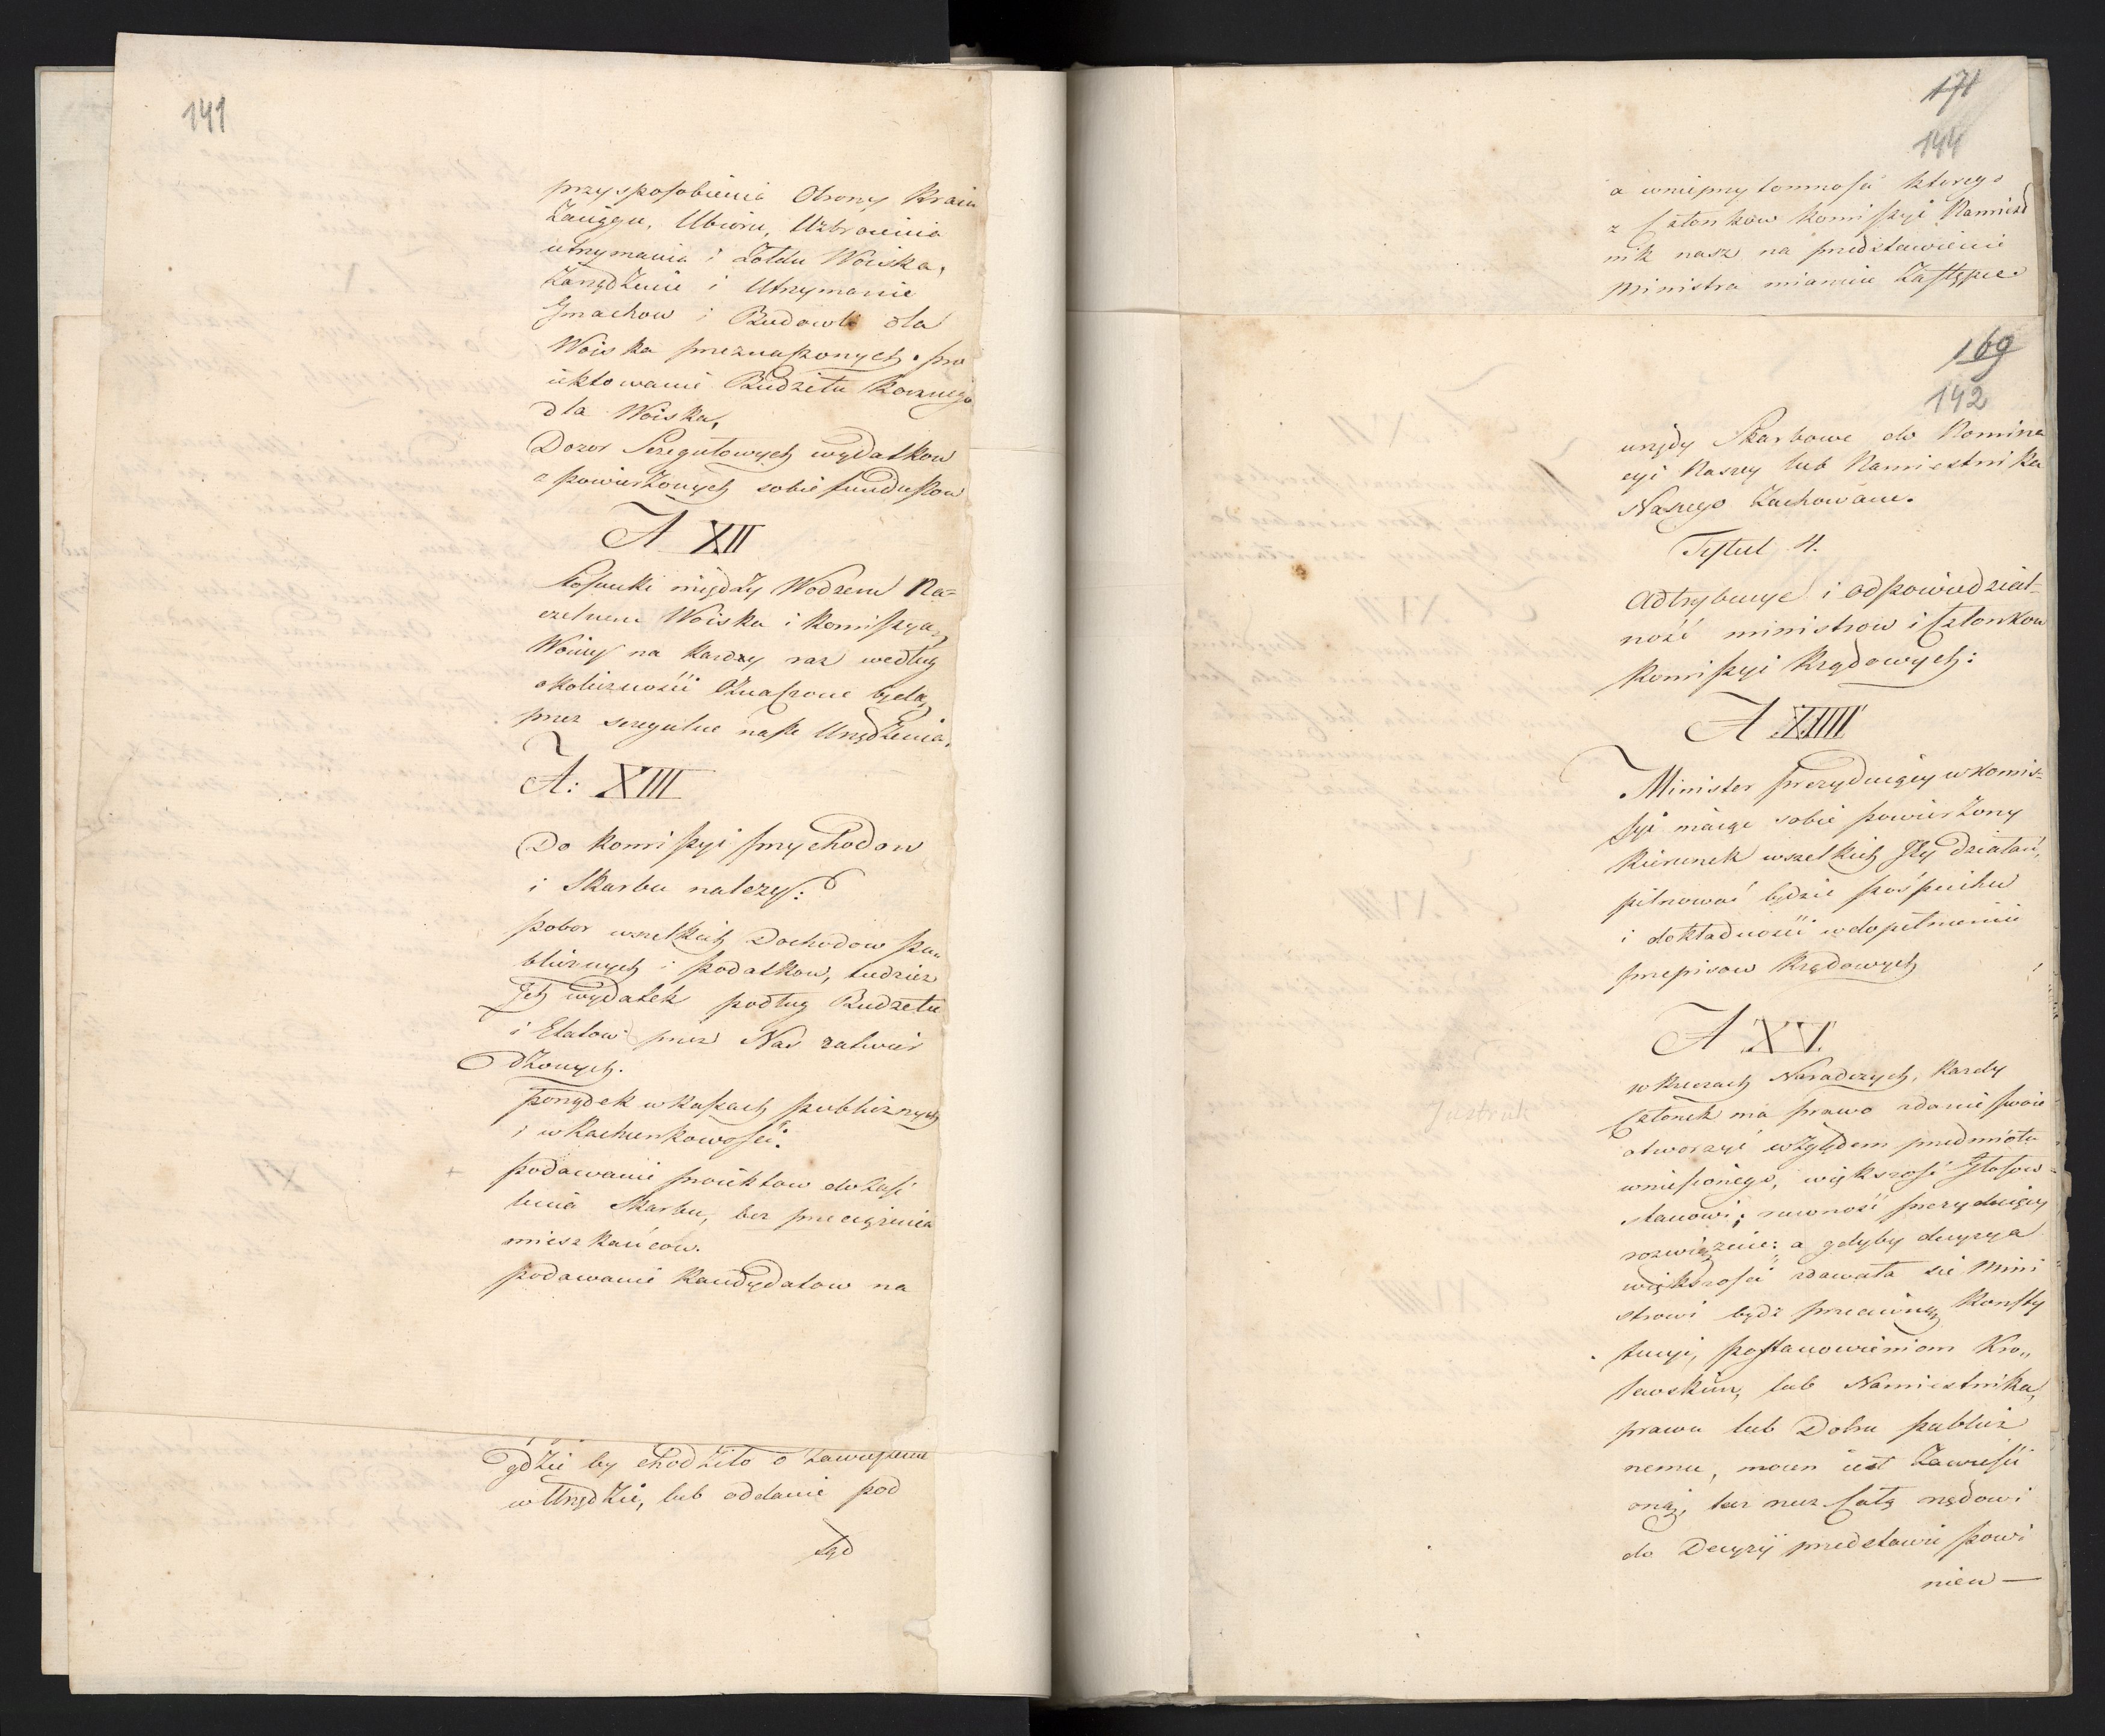 141
przysposobienia Obrony Kraiu
Zaciągu, Ubioru, Uzbroienia
utrzymania i Żołdu Woiska,
Zarządzenie i Utrzymanie
Gmachow i Budowli dla
Woiska przeznaszonych. pro
iektowanie Budżetu Rocznego
dla Woiska,
Dozor Szegułowych wydatkow
z powierzonych sobie funduszow
A XII
Stosunki między Wodzem Na=
czelnem Woiska i Komissyą
Woiny na każdy raz według
okoliczności Oznaczone będą
przez szegulne nasze Urządzenia.
A: XIII
Do Komissyi przychodow
i Skarbu należy:
pobor wszelkich Dochodow pu„
blicznych i podatkow, tudziesz
Jch wydatek podług Budżetu
i Etatow przez Nas zatwier
dzonych.
porządek w kassach publicznych
i w Rachunkowości.
podawanie proiektow do Zasi
lenia Skarbu, bez przeciążenia
mieszkańcow.
podawanie Kandydatow na
gdzie by chodziło o Zawieszenie
w Urzędzie, lub oddanie pod
Sąd
171
144
a w nieprzytomności ktorego
z Członkow Komissyi Namiest
nik nasz na przedstawienie
Ministra mianuie Zastępce
169
142
urzędy Skarbowe do Nomina
cyi Naszey lub Namiestnika
Naszego Zachowane.
Tytuł 4.
Adtrybucye i odpowiedzial-
ność ministrow i Członkow
Komissyi Rządowych:
A XIIII
Minister prezyduiący w Komis=
syi maiąc sobie powierzony
Kierunek wszelkich Jey działań,
pilnować będzie pośpiechu
i dokładności w dopełnieniu
przepisow Rządowych
A XV
w Rzeczach Naradczych, Kazdy
Członek ma prawo zdanie swoie
otworzyć względem przedmiotu
wniesionego, większość Głosow
stanowi; rowność prezyduiący
rozwiąże: a gdyby decyzya
większości zdawała się Mini
strowi bydź przeciwną Konsty
tucyi, postanowieniom Kro„
lewskim, lub Namiestnika,
prawu lub Dobru publicz
nemu, mocen iest Zawiesić
onąż, lecz rzecz Całą rządowi
do Decyzyi przedstawić powi
nien —